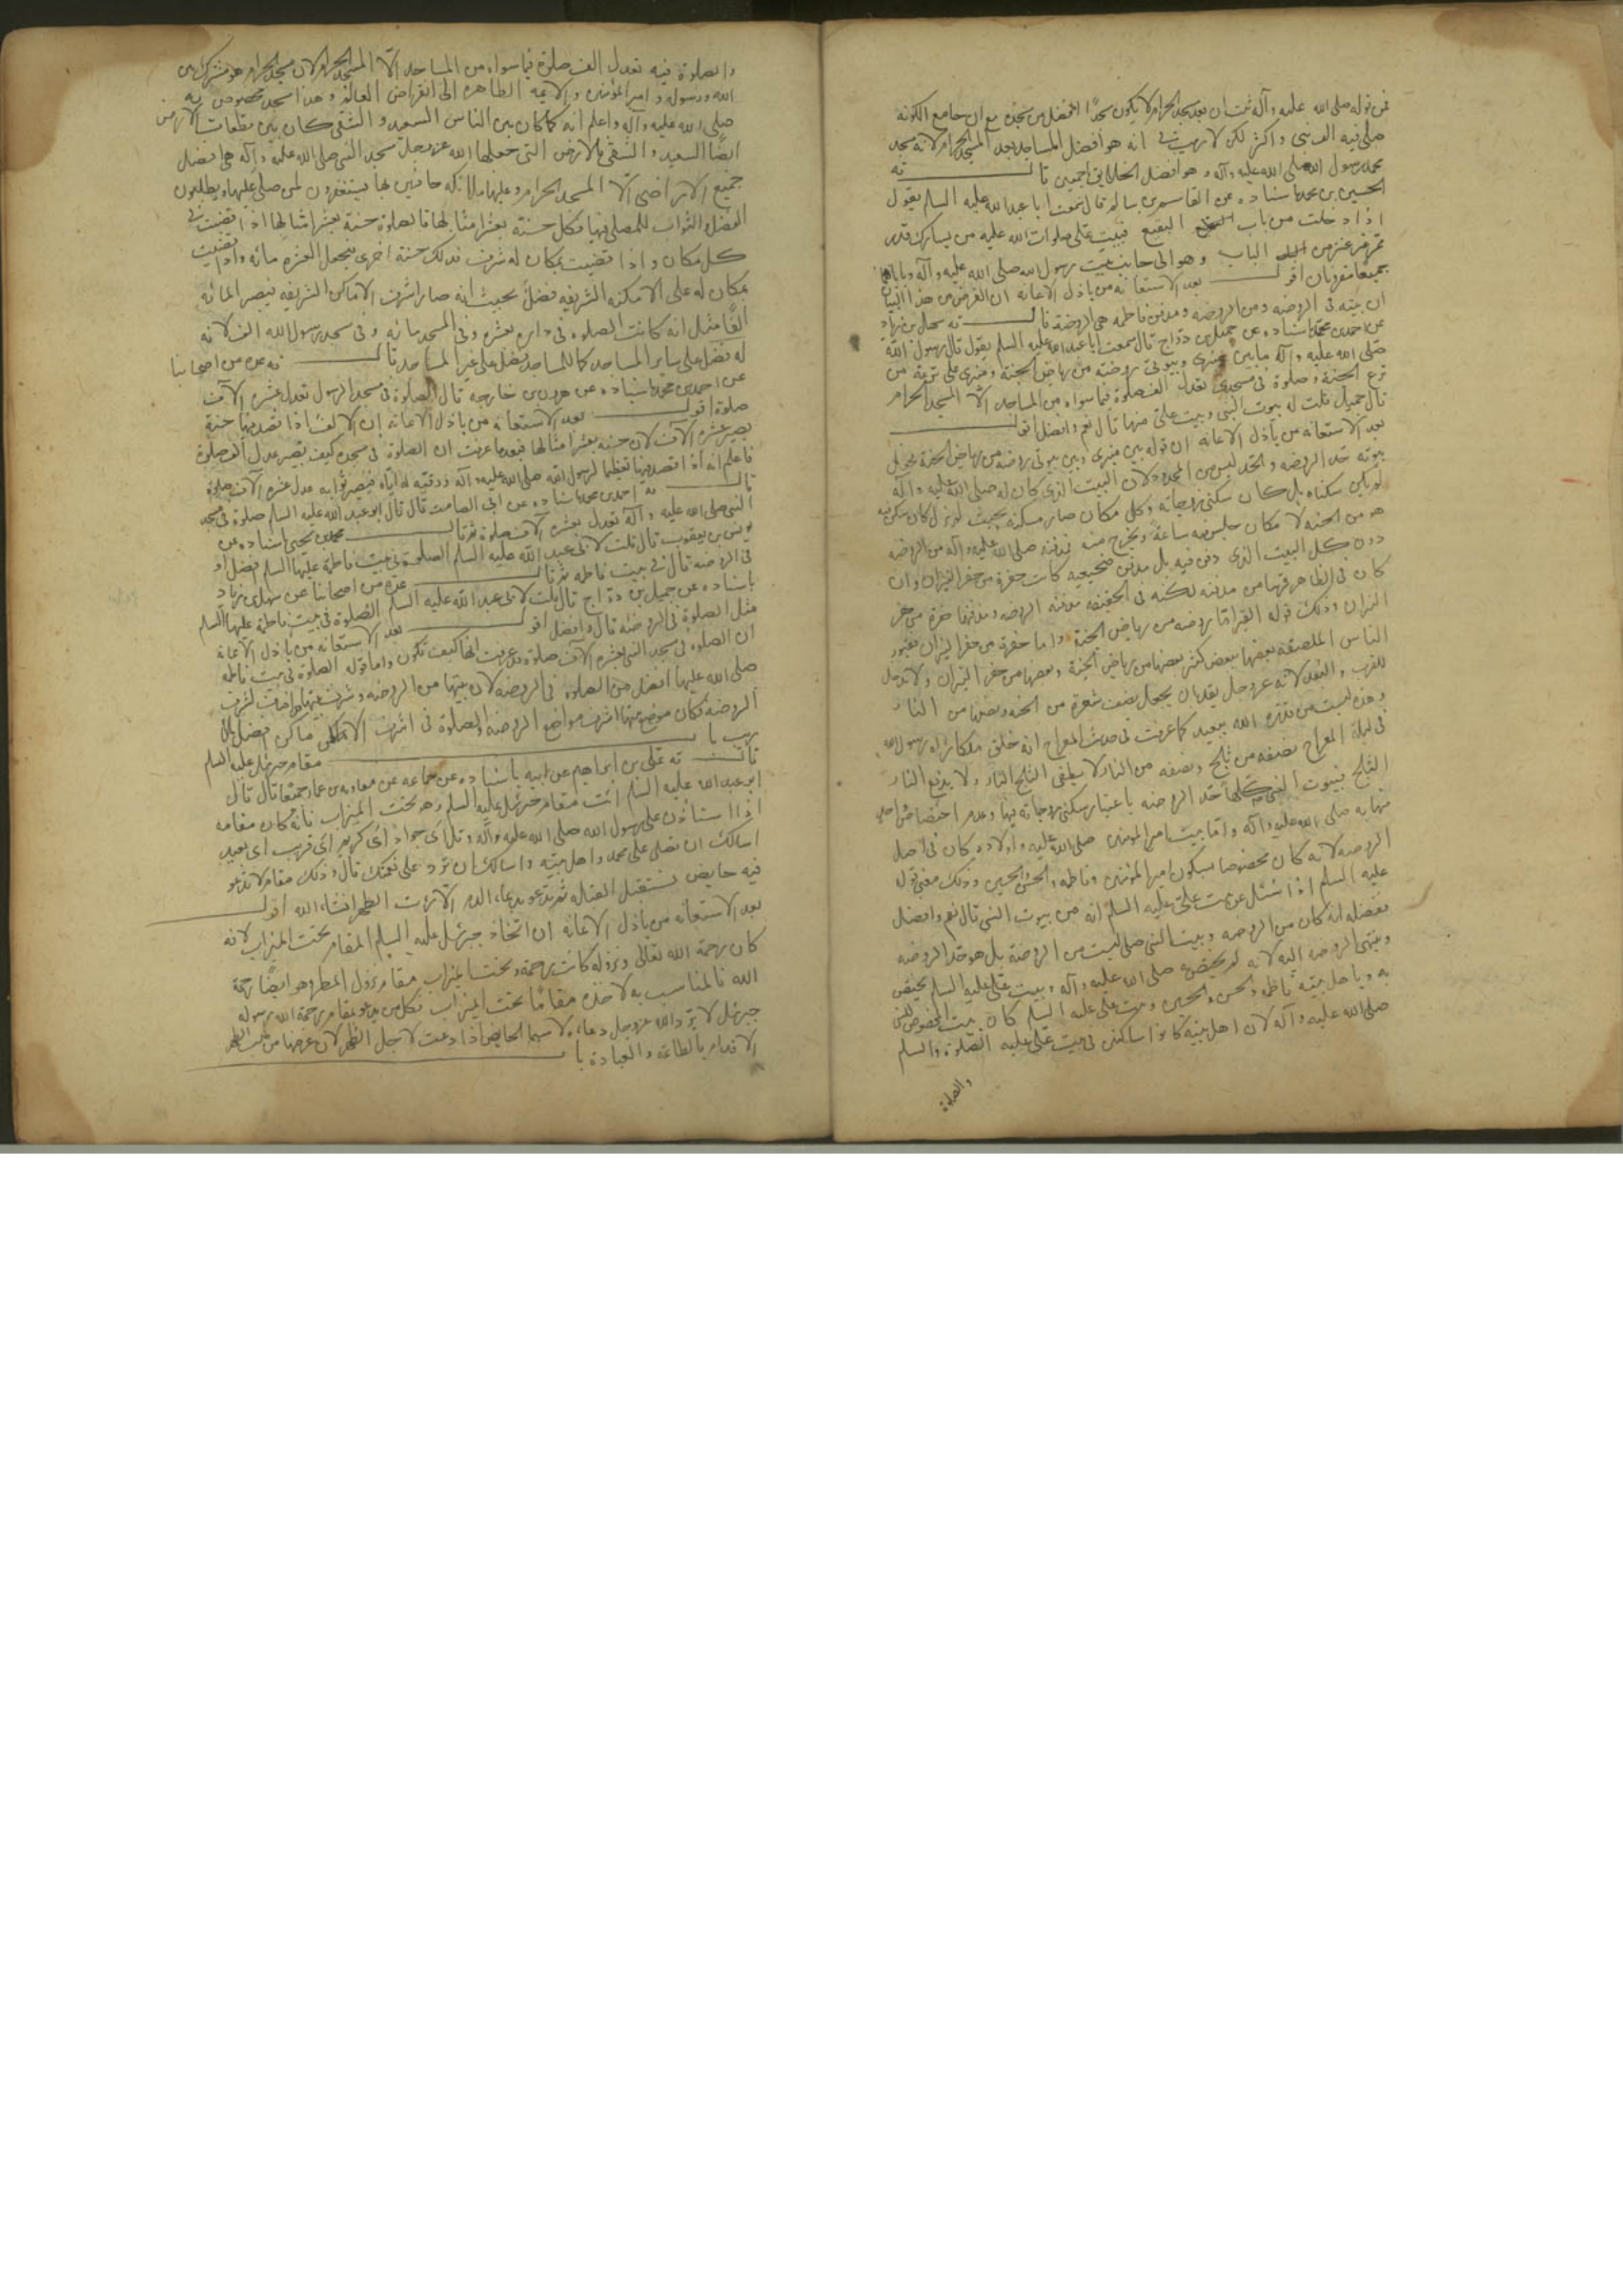 فمن قوله صلى الله عليه وآله ثبت ان بعد مسجد الحرام لا يكون مسجدًا افضل من مسجده مع ان جامع الكوفة
صلى فيه الف نبى واكثر لكن لا ريب فى انه هو افضل المساجد بعد المسجد الحرام لانه مسجد
محمد رسول الله صلى الله عليه وآله وهو افضل الخلايق اجمعين قال
الحسين بن محمد باسناده عن القاسم بن سالم قال سمعت ابا عبد الله عليه السلم يقول
اذا دخلت من باب البقيع فبيت على صلوات الله عليه من يسارك قدر
ممر عنز من الباب وهو الى جانب بيت رسول الله صلى الله عليه وآله وباباهما
جميعا مقرونان اقول بعد الاستعانه من باذل الاعانه ان الغرض من هذا البيان
ان بيته فى الروضه ومن الروضه ومدفن فاطمه هى الروضة قال سهل بن زياد
عن احمد بن محمد باسناده عن جميل بن دراج قال سمعت ابا عبد الله عليه السلم يقول قال رسول الله
صلى الله عليه وآله ما بين منبرى وبيوتى روضة من رياض الجنة ومنبرى على ترعة من
ترع الجنة وصلوة فى مسجدى تعدل الف صلوة فيما سواه من المساجد الا المسجد الحرام
قال جميل قلت له بيوت النبى وبيت على منها قال نعم وافضل اقول
بعد الاستعانه من باذل الاعانه ان قوله بين منبرى وبين بيوتى روضه من رياض الجنة
بيوته حد الروضه والحد ليس من المحدود لان البيت الذى كان له صلى الله عليه وآله
لم يكن سكناه بل كان سكنى زوجاته وكل مكان صار مسكنه بحيث
هو من الجنه لا مكان جلس فيه ساعة ويخرج منه فمدفنه صلى الله عليه وآله من الروضه
دون كل البيت الذى دفن فيه بل مدفن ضجيعيه كانت حفرة من حفر النيران وان
كان فى الظاهر قريبا من مدفنه لكنه فى الحقيقه مدفنه الروضه ومدفنهما حفرة من حفر
النيران وذلك قوله القبر اما روضه من رياض الجنة واما حفرة من حفر النيران فقبور
الناس الملصقه بعضها ببعض كثير بعضها من رياض الجنة وبعضها من حفر النيران ولا
للقرب والبعد لانه عز وجل يقدر ان يجعل نصف شعرة من الجنه ونصفها من النار
وهذه ليست من قدرة الله ببعيد كما عرفت فى حديث المعراج انه خلق ملكا رآه رسول الله
فى ليلة المعراج نصفه من ثلج ونصفه من النار لا يطفى الثلج النار ولا يذيب النار
الثلج فبيوت النبى كلها حد الروضه باعتبار سكنى زوجاته فيها وعدم اختصاص
منها به صلى الله عليه وآله واما بيت امير المؤمنين صلى الله عليه واولاده كان فى اصل
الروضه لانه كان مخصوصا بسكون امير المؤمنين وفاطمه والحسن والحسين وذلك معنى قوله
عليه السلم اذا سئل عن بيت على عليه السلم انه من بيوت النبى قال نعم وافضل
ففضله انه كان من الروضه وبيت النبى صلى ليست من الروضة بل هو حد الروضه
وينتهى الروضه اليه لانه لم يختص به صلى الله عليه وآله وبيت على عليه السلم يختص
به وباهل بيته فاطمه والحسن والحسين وبيت على عليه السلم كان بيت المخصوص للنبى
صلى الله عليه وآله لان اهل بيته كانوا ساكنين فى بيت على عليه الصلوة والسلم
والصلوة
والصلوة فيه تعدل الف صلوة فيما سواه من المساجد الا المسجد الحرام لان مسجد الحرام هو مشترك بين
الله ورسوله وامير المؤمنين والايمه الطاهره الى انقراض العالم وهذا مسجد مخصوص به
صلى الله عليه وآله واعلم انه كما كان بين الناس السعيد والشقى كان بين بقعات الارض
ايضًا السعيد والشقى فالارض التى جعلها الله عز وجل مسجد النبى صلى الله عليه وآله هى افضل
جميع الاراضى الا المسجد الحرام وعليها ملائكه حافين بها يستغفرون لمن صلى عليها ويطلبون
الفضل والثواب للمصلى فيها فكل حسنة بعشر امثالها فالصلوة حسنة بعشر امثالها اذا قضيت فى
كل مكان واذا قضيت بمكان له شرف فذلك حسنة اخرى فيجعل العشره مائه واذا قضيت
بمكان له على الامكنه الشريفه فضلٌ بحيث انه صار اشرف الاماكن الشريفه فيصير المائه
الفًا مثل انه كانت الصلوه فى داره بعشره وفى المسجد مائه وفى مسجد رسول الله الف لانه
له فضل على ساير المساجد كما للمساجد فضل على غير المساجد قال عده من اصحابنا
عن احمد بن محمد باسناده عن هرون بن خارجه قال الصلوة فى مسجد الرسول تعدل عشره الآف
صلوة اقول بعد الاستعانه من باذل الاعانه ان الالف اذا قصد فيها حسنة
يصير عشره الآف لان حسنه بعشر امثالها فبعد ما عرفت ان الصلوة فى مسجده كيف يصير عدل الف صلوة
فاعلم انه اذا قصد فيها تعظيما لرسول الله صلى الله عليه وآله فيصير ثوابه عدل عشره الآف صلوة
قال احمد بن محمد باسناده عن ابى الصامت قال قال ابو عبد الله عليه السلم صلوة فى مسجد
النبى صلى الله عليه وآله تعدل بعشره الآف صلوة ثم قال محمد بن يحيى باسناده عن
يونس بن يعقوب قال قلت لابى عبد الله عليه السلم الصلوة فى بيت فاطمة عليها السلم افضل او
فى الروضه قال فى بيت فاطمه ثم قال عده من اصحابنا عن سهل بن زياد
باسناده عن جميل بن دراج قال قلت لابى عبد الله عليه السلم الصلوة فى بيت فاطمة عليها السلم
مثل الصلوة فى الروضه قال وافضل اقول بعد الاستعانه من باذل الاعانه
ان الصلوة فى مسجد النبى بعشره الآف صلوة وقد عرفت انها كيف تكون واما قوله الصلوة فى بيت فاطمه
صلى الله عليها افضل من الصلوه فى الروضه لان بيتها من الروضه وشرف بيتها
الروضه فكان موضع بيتها اشرف مواضع الروضه والصلوة فى اشرف الاماكن افضل بلا
ريب باب مقام جبرئيل عليه السلم
قال على بن ابراهيم عن ابيه باسناده عن جماعه عن معاويه بن عمار جميعا قال قال
ابو عبد الله عليه السلم ائت مقام جبرئيل عليه السلم وهو تحت الميزاب فانه كان مقامه
اذا استاذن على رسول الله صلى الله عليه وآله وقل اى جواد اى كريم اى قريب اى بعيد
اسالك ان تصلى على محمد واهل بيته واسالك ان ترد على نعمتك قال وذلك مقام لا تدعو
فيه حايض تستقبل القبله ثم تدعو بدعاء الدم الا رات الطهر انشاء الله اقول
بعد الاستعانه من باذل الاعانه ان اتخاذ جبرئيل عليه السلم المقام تحت الميزاب لانه
كان رحمة الله تعالى ونزوله كانت رحمة وتحت الميزاب مقام نزول المطر وهو ايضًا رحمة
الله فالمناسب به لاخذه مقامًا تحت الميزاب فكل من يدعو بمقام رحمة الله رسوله
جبرئيل لا يرد الله عز وجل دعاءه لا سيما الحايض اذا دعت لاجل الطهر لان غرضها من الطهر
الاقدام بالطاعة والعبادة باب